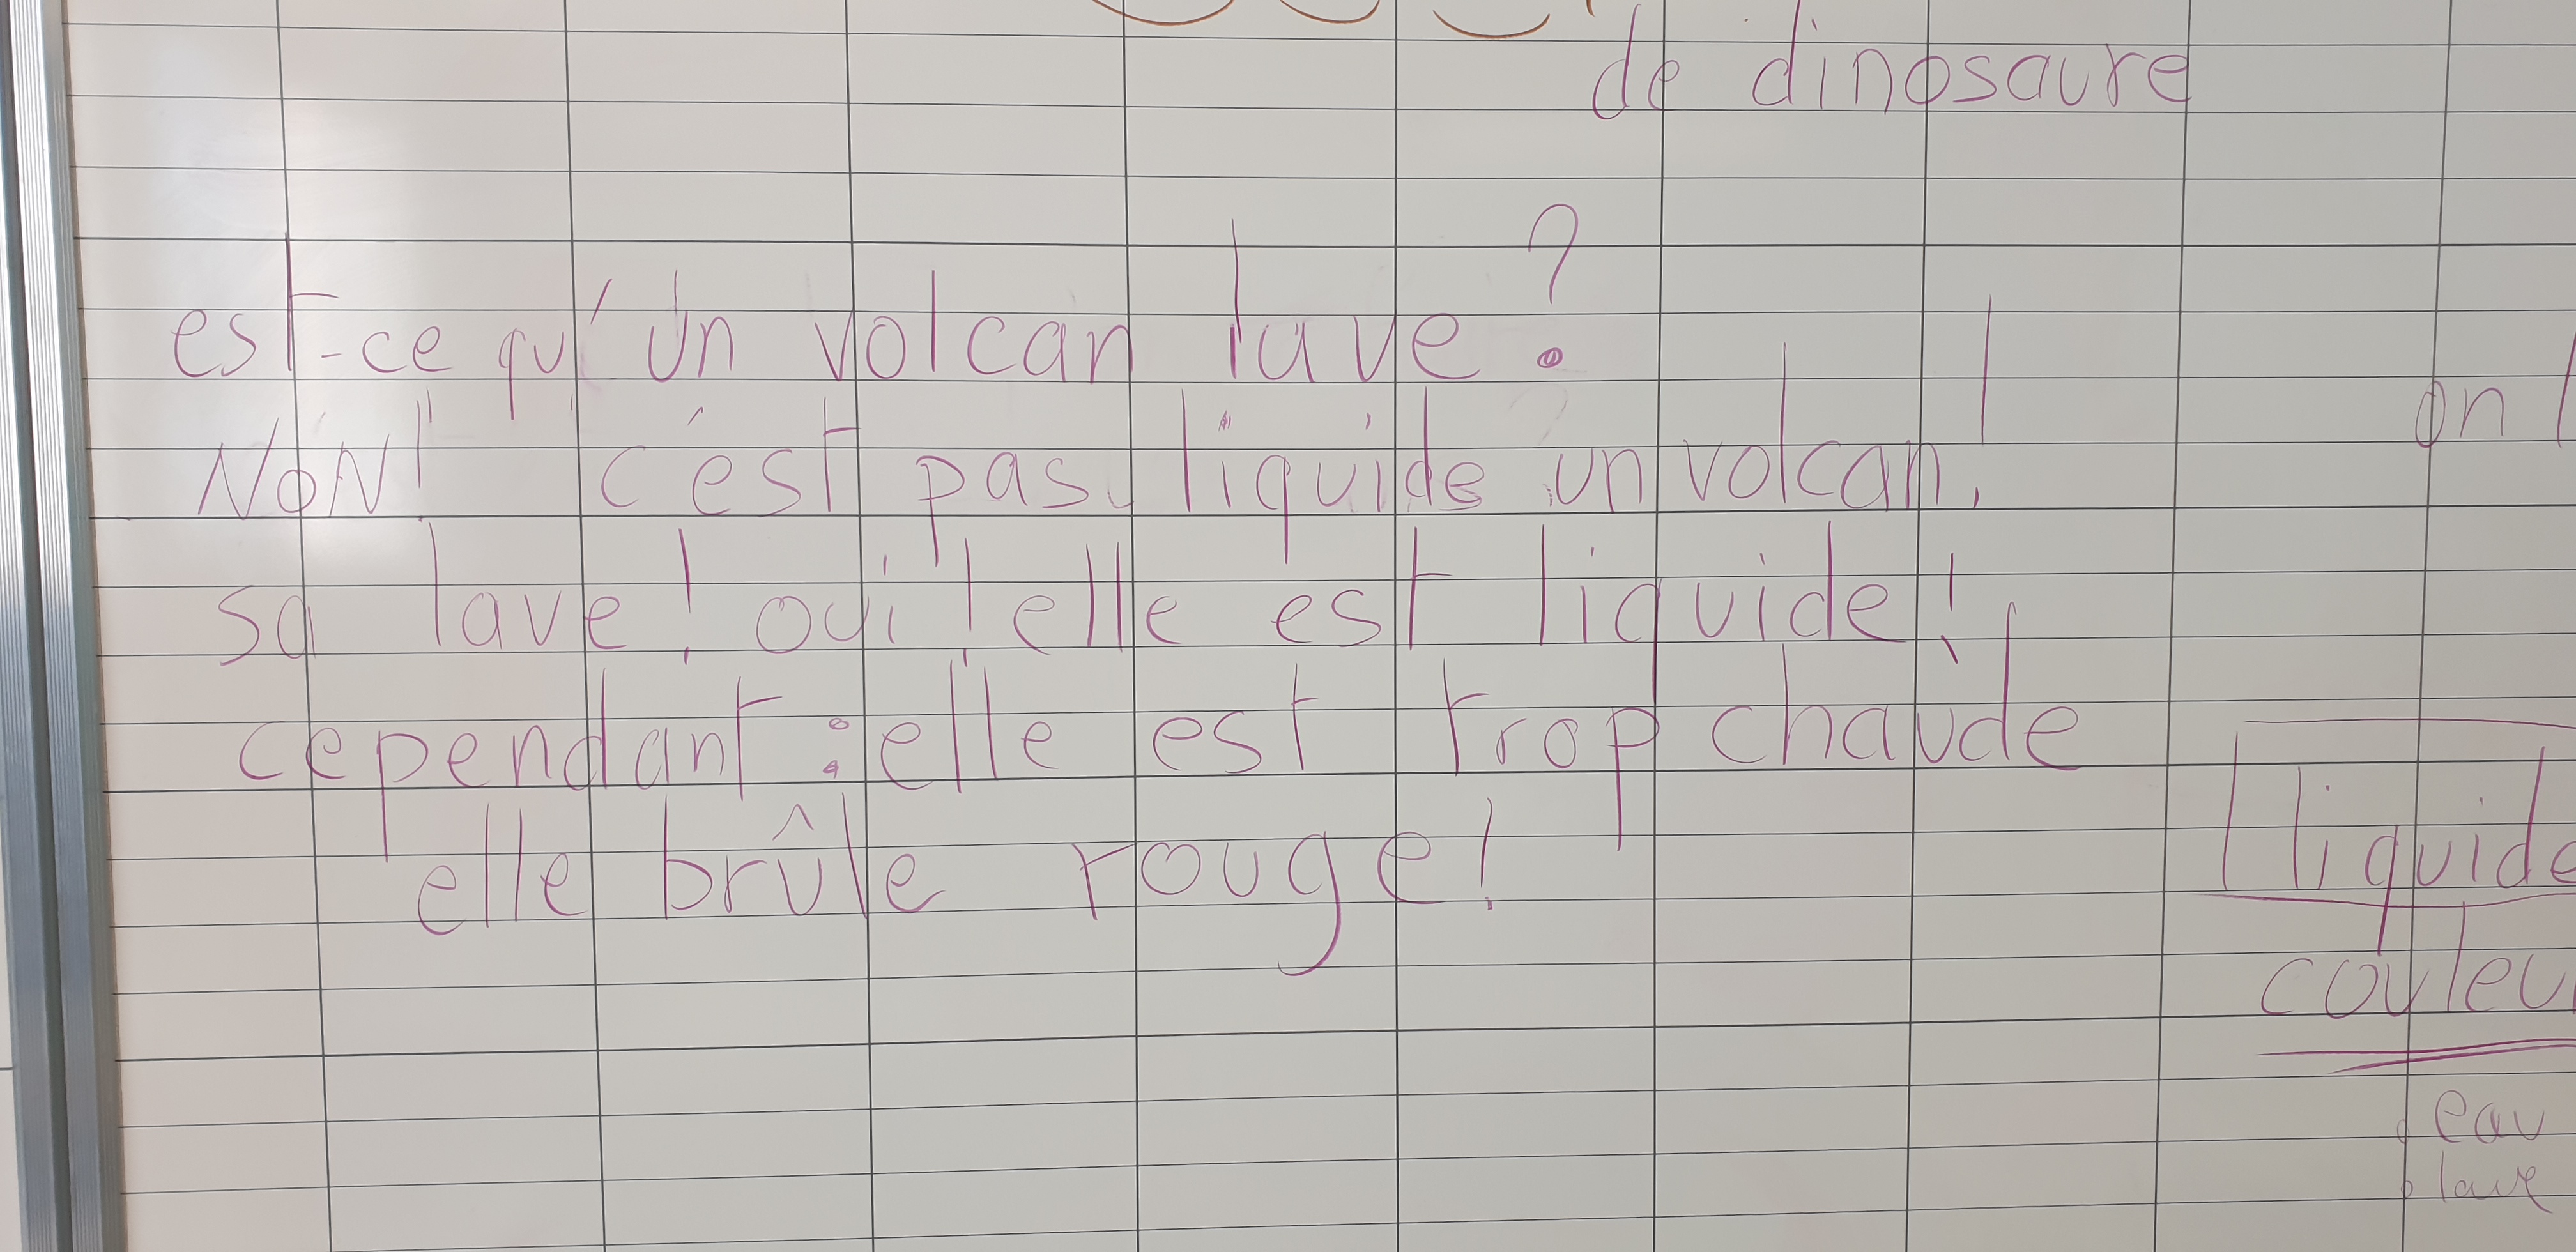 de dinosaure
est-ce qu'un volcan lave ?
NON! c'est pas liquide un volcan!
sa lave! oui! elle est liquide!
cependant : elle est trop chaude
elle brûle rouge!
on
liquide
couleu
eau
lave